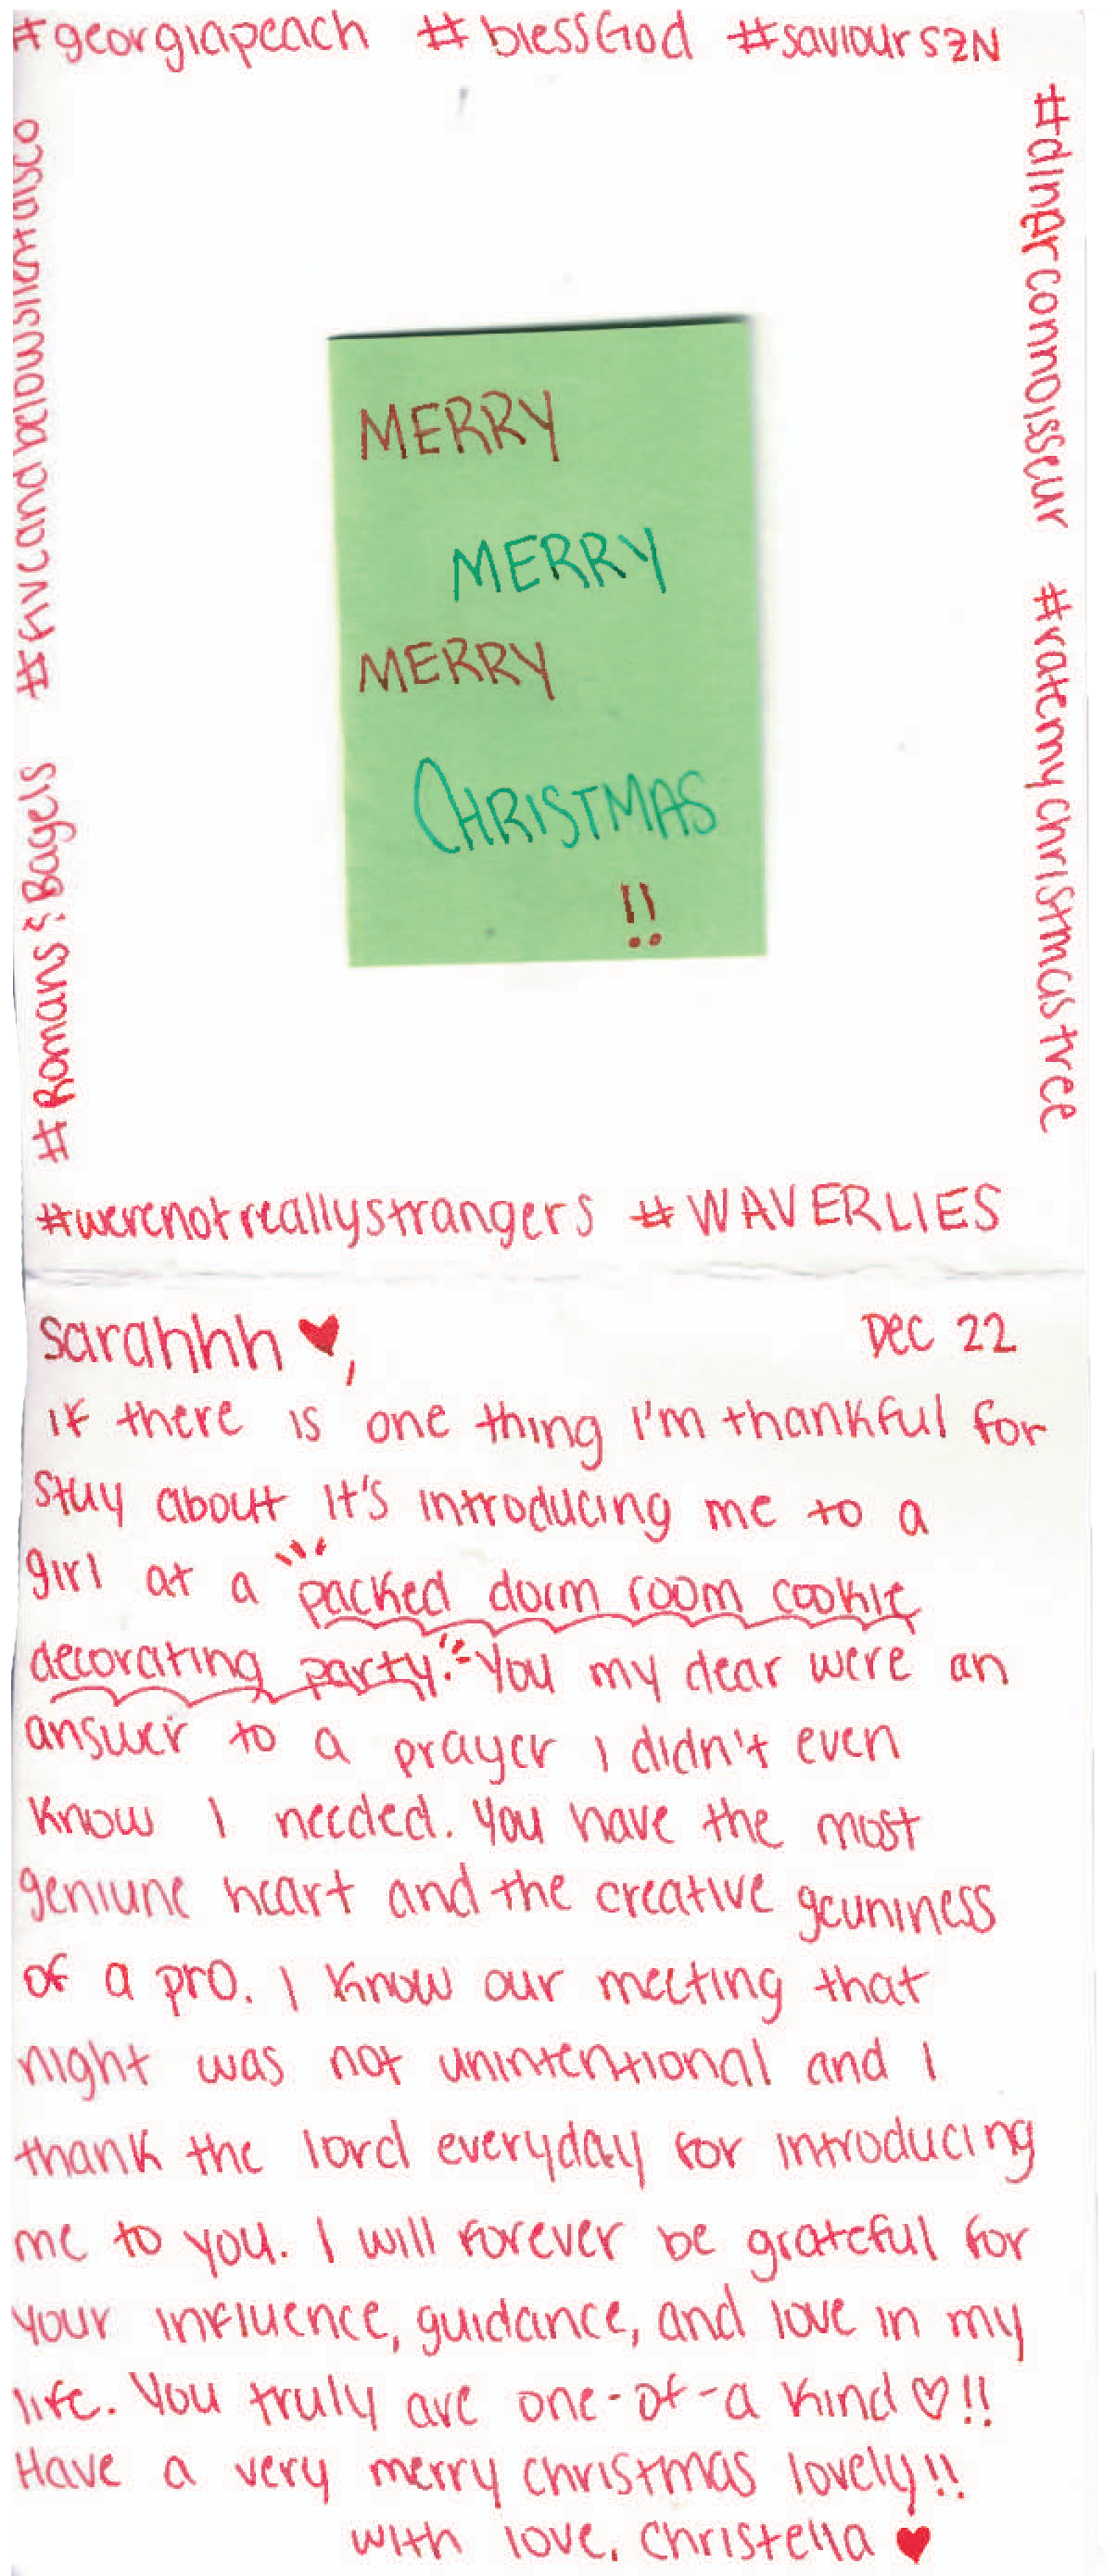 #georgiapeach #blessGod #saviourSZN
#dinerconnoisseur #ratemychristmastree
#fiveandbelowsilentdisco
#Romans&Bagels
MERRY
MERRY
MERRY
CHRISTMAS
!!
#werenotreallystrangers #WAVERLIES
sarahhh ♥,
Dec 22
if there is one thing I'm thankful for
stuy about it's introducing me to a
girl at a "packed dorm room cookie
decorating party." You my dear were an
answer to a prayer I didn't even
know I needed. You have the most
geniune heart and the creative geuniness
of a pro. I know our meeting that
night was not unintentional and I
thank the lord everyday for introducing
me to you. I will forever be grateful for
your influence, guidance, and love in my
life. You truly are one-of-a kind ♡!!
Have a very merry christmas lovely!!
with love, Christella ♥